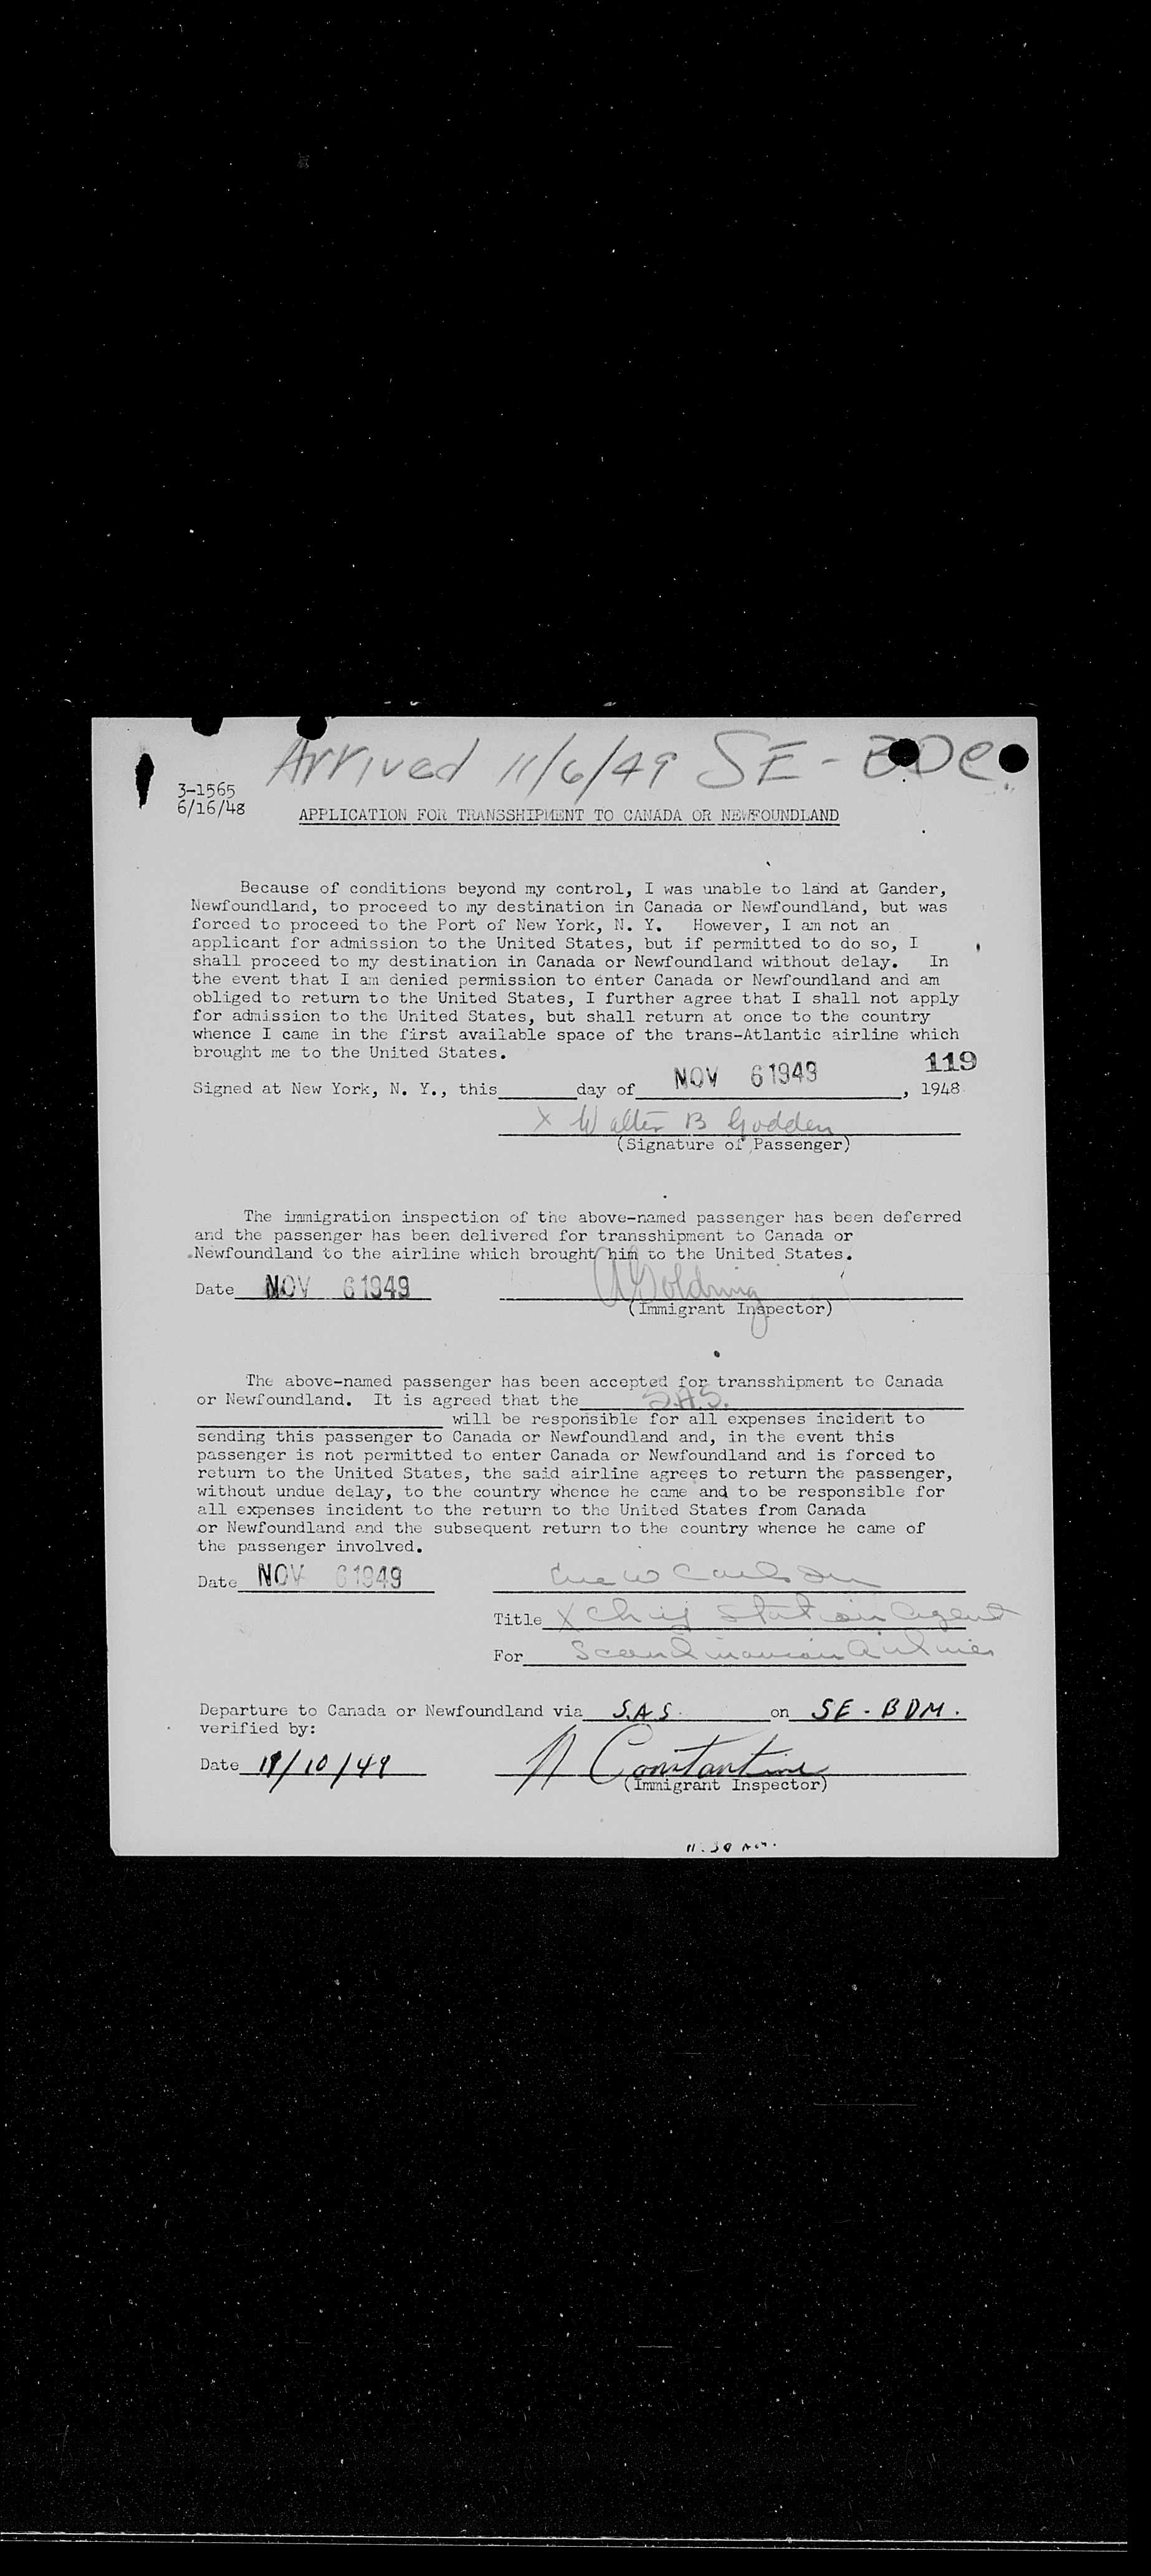 Arrived 11/6/49 SE - BDC
3-1565
6/16/48
APPLICATION FOR TRANSSHIPMENT TO CANADA OR NEWFOUNDLAND
Because of conditions beyond my control, I was unable to land at Gander,
Newfoundland, to proceed to my destination in Canada or Newfoundland, but was
forced to proceed to the Port of New York, N. Y. However, I am not an
applicant for admission to the United States, but if permitted to do so, I
shall proceed to my destination in Canada or Newfoundland without delay. In
the event that I am denied permission to enter Canada or Newfoundland and am
obliged to return to the United States, I further agree that I shall not apply
for admission to the United States, but shall return at once to the country
whence I came in the first available space of the trans-Atlantic airline which
brought me to the United States.
119
Signed at New York, N. Y., this day of NOV 6 1949, 1948
X Walter B Godden
(Signature of Passenger)
The immigration inspection of the above-named passenger has been deferred
and the passenger has been delivered for transshipment to Canada or
Newfoundland to the airline which brought him to the United States.
Date NOV 6 1949 A Goldring
(Immigrant Inspector)
The above-named passenger has been accepted for transshipment to Canada
or Newfoundland. It is agreed that the S.A.S.
will be responsible for all expenses incident to
sending this passenger to Canada or Newfoundland and, in the event this
passenger is not permitted to enter Canada or Newfoundland and is forced to
return to the United States, the said airline agrees to return the passenger,
without undue delay, to the country whence he came and to be responsible for
all expenses incident to the return to the United States from Canada
or Newfoundland and the subsequent return to the country whence he came of
the passenger involved.
Date NOV 6 1949 W Carlson
Title X Chief Station Agent
For Scandinavian Airlines
Departure to Canada or Newfoundland via S.A.S. on SE - BDM.
verified by:
Date 11/10/49 A Constantine
(Immigrant Inspector)
11.30 AM.